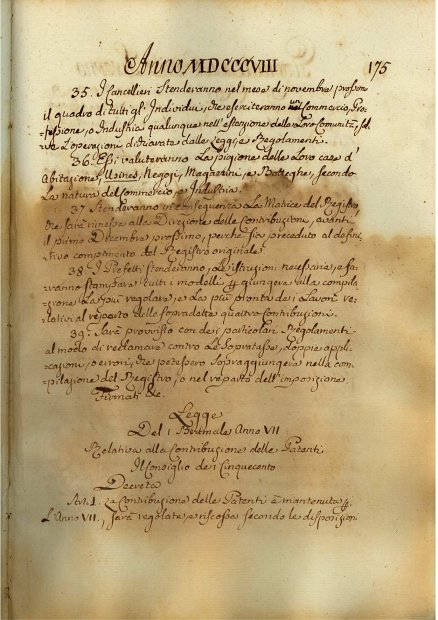 Anno MDCCCVIII 175
35. I Cancellieri Stenderanno nel mese di novembre prossim
il quadro di tutti gl' Individui, che eserciteranno Commercio, Pro-
=fessione, o Industria qualunque nell'estazione delle Loro Comunità, sal
ve L'operazioni distratta dalle Leggi, e Regolamenti.
36. Essi valuteranno La pigione delle Loro case d'
Abitazione, Usines, Negozi, Magazzini, e Botteghe, secondo
La natura del Commercio, e Industria.
37. Stenderanno in conseguenza La Matrice del Registro,
che sarà rimessa alla Direzione delle Contribuzioni, avanti
il primo Decembre prossimo, perchè sia preceduto al defini
tivo compimento del Registro originale.
38. I Prefetti stenderanno, Le istruzioni necessarie, e fa
ranno stampare tutti i modelli p giungere alla compila
=zione La più regolare, e La più pronta dei Lavori re-
lativi al reparto delle sopradette quattro Contribuzioni.
39. Sarà provvisto con dei particolari Regolamenti
al modo di reclamare contro Le Soprataße, doppie appli-
cazioni, o errori, che potessero sopraggiungere nella com=
pilazione del Registro, o nel reparto dell'imposizione
Firmati &c.
Legge
Del 1 Brumale Anno VII
Relativa alla Contribuzione delle Patenti
Il Consiglio dei Cinquecento
Decreta
Art. 1. La Contribuzione delle Patenti è mantenuta p
L'Anno VII, sarà regolata, e riscossa secondo le disposizioni